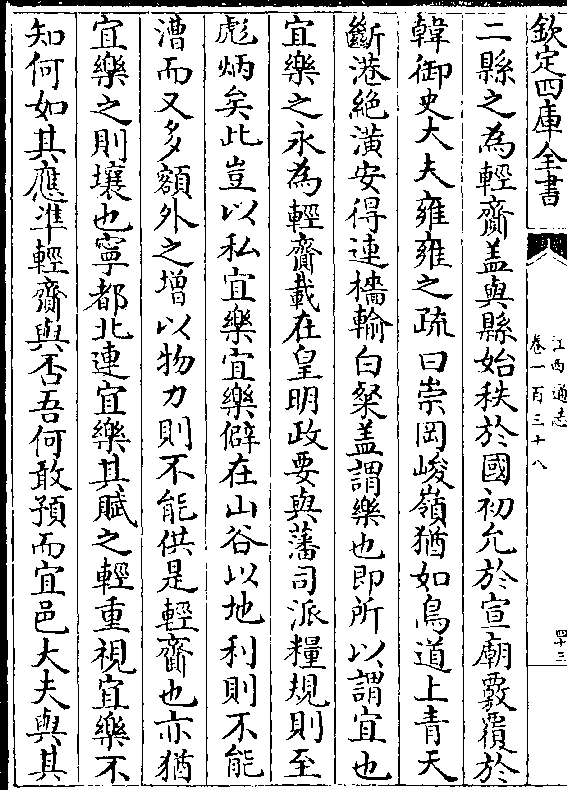 欽定四庫全書
江西通志
卷一百三十八
四十三
二縣之為輕齎盖與縣始秩於國初允於宣廟覈覆於
韓御史大夫雍雍之疏曰崇岡峻嶺猶如鳥道上青天
斷港絶潢安得連檣輸白粲盖謂樂也即所以謂宜也
宜樂之永為輕齎載在皇明政要與藩司派糧規則至
彪炳矣此豈以私宜樂宜樂僻在山谷以地利則不能
漕而又多額外之增以物力則不能供是輕齎也亦猶
宜樂之則壤也寧都北連宜樂其賦之輕重視宜樂不
知何如其應準輕齎與否吾何敢預而宜邑大夫與其